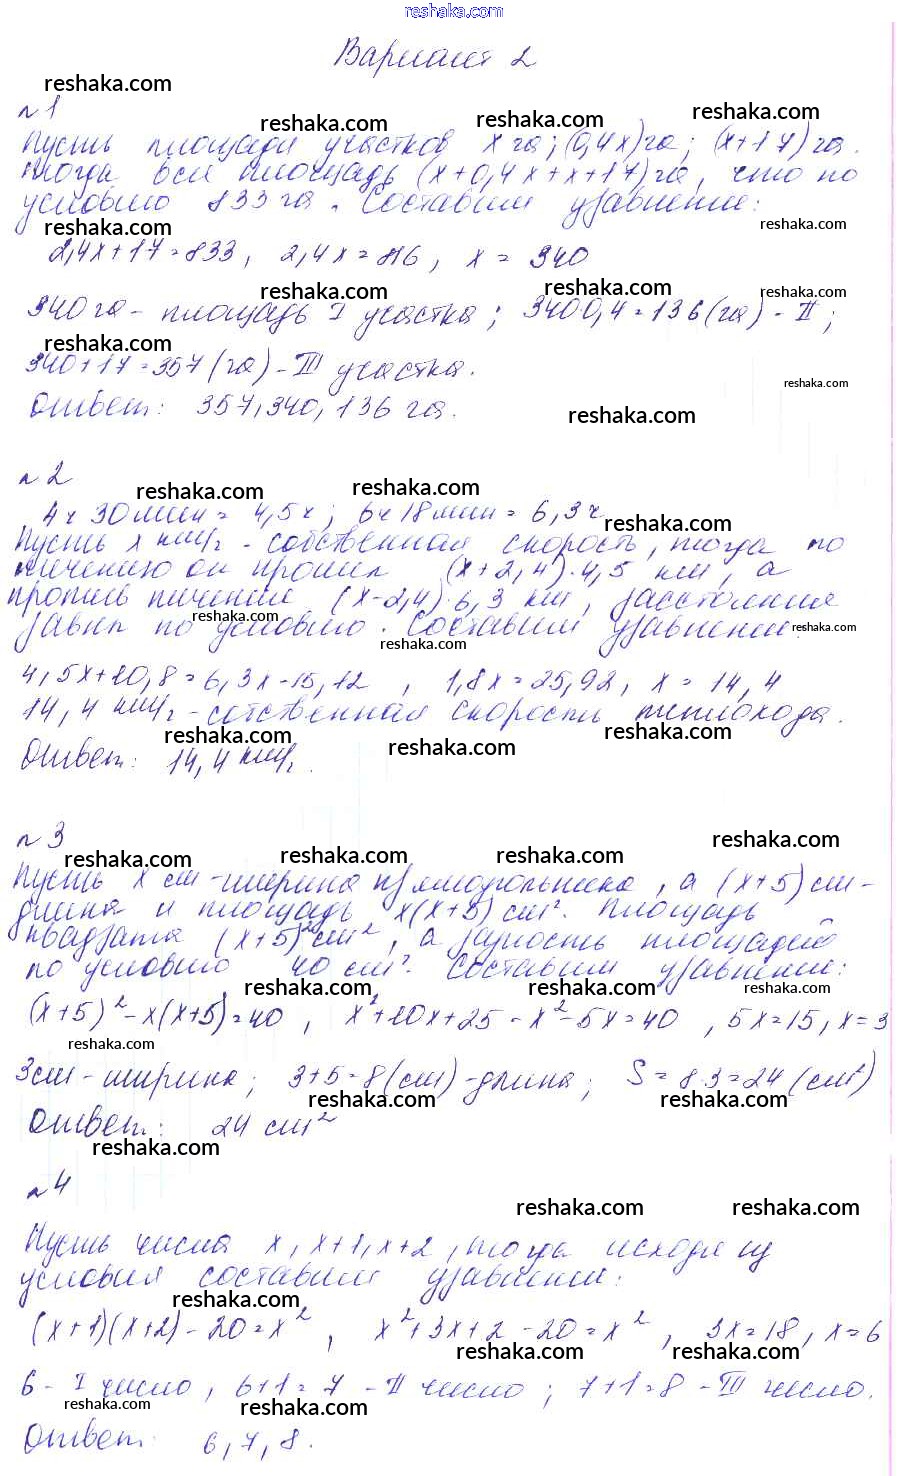 reshaka.com
Вариант 2
reshaka.com
№1
reshaka.com reshaka.com reshaka.com
Пусть площади участков x га; (0,4x) га; (x+17) га.
Тогда вся площадь (x+0,4x+x+17) га, что по
условию 833 га. Составим уравнение:
reshaka.com reshaka.com
2,4x+17=833, 2,4x=816, x = 340
reshaka.com reshaka.com reshaka.com
340 га - площадь I участка; 340·0,4=136 (га) - II;
reshaka.com
340+17=357 (га) - III участка.
reshaka.com
Ответ: 357, 340, 136 га.
reshaka.com
№2
reshaka.com reshaka.com
4ч 30мин = 4,5ч; 6ч 18мин = 6,3ч
reshaka.com
Пусть x км/ч - собственная скорость, тогда по
течению он прошел (x+2,4)·4,5 км, а
против течения (x-2,4)·6,3 км, расстояния
reshaka.com
равны по условию. Составим уравнение:
reshaka.com
reshaka.com
4,5x+10,8=6,3x-15,12, 1,8x=25,92, x=14,4
14,4 км/ч - собственная скорость теплохода.
reshaka.com reshaka.com reshaka.com
Ответ: 14,4 км/ч.
№3
reshaka.com reshaka.com reshaka.com reshaka.com
Пусть x см - ширина прямоугольника, а (x+5) см -
длина и площадь x(x+5) см². Площадь
квадрата (x+5)² см², а разность площадей
по условию 40 см². Составим уравнение:
reshaka.com reshaka.com reshaka.com
(x+5)²-x(x+5)=40, x²+10x+25-x²-5x=40, 5x=15, x=3
reshaka.com
3см - ширина; 3+5=8(см) - длина; S=8·3=24(см²)
reshaka.com reshaka.com
Ответ: 24 см²
reshaka.com
№4
reshaka.com reshaka.com
Пусть числа x, x+1, x+2, тогда исходя из
условия составим уравнение:
reshaka.com
(x+1)(x+2)-20=x², x²+3x+2-20=x², 3x=18, x=6
reshaka.com reshaka.com
6 - I число, 6+1=7 - II число; 7+1=8 - III число.
reshaka.com reshaka.com
Ответ: 6, 7, 8.